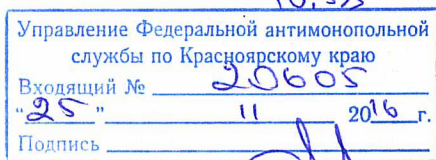 Управление Федеральной антимонопольной
службы по Красноярскому краю
Входящий № 20605
"25" 11 2016 г.
Подпись